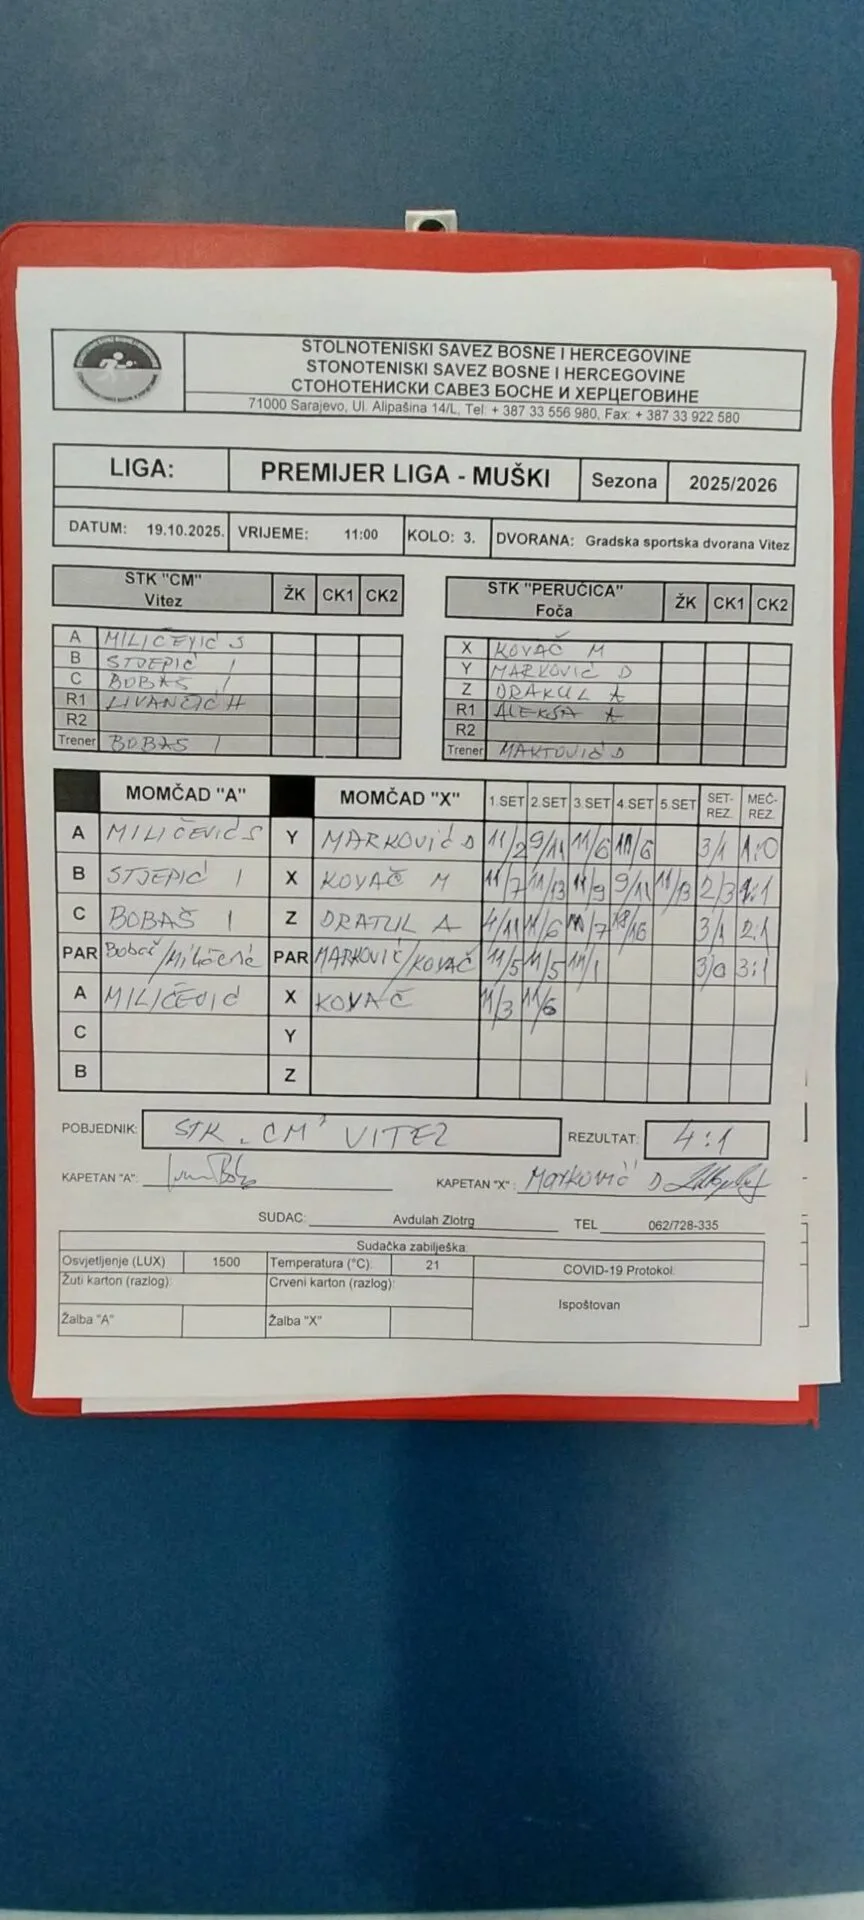 STOLNOTENISKI SAVEZ BOSNE I HERCEGOVINE
STONOTENISKI SAVEZ BOSNE I HERCEGOVINE
СТОНОТЕНИСКИ САВЕЗ БОСНЕ И ХЕРЦЕГОВИНЕ
71000 Sarajevo, Ul. Alipašina 14/L, Tel: + 387 33 556 980, Fax: + 387 33 922 580
LIGA: PREMIJER LIGA - MUŠKI Sezona 2025/2026
DATUM: 19.10.2025. VRIJEME: 11:00 KOLO: 3. DVORANA: Gradska sportska dvorana Vitez
STK "CM" Vitez ŽK CK1 CK2
A MILIČEVIĆ S
B STJEPIĆ I
C BOBAŠ I
R1 LIVANČIĆ H
R2
Trener BOBAŠ I
STK "PERUĆICA" Foča ŽK CK1 CK2
X KOVAČ M
Y MARKOVIĆ D
Z DRAKUL A
R1 ALEKSA A
R2
Trener MARKOVIĆ D
MOMČAD "A" MOMČAD "X" 1.SET 2.SET 3.SET 4.SET 5.SET SET-REZ. MEČ-REZ.
A MILIČEVIĆ S Y MARKOVIĆ D 11/2 9/11 11/6 11/6 3/1 1:0
B STJEPIĆ I X KOVAČ M 11/7 11/13 11/9 9/11 11/13 2/3 1:1
C BOBAŠ I Z DRAKUL A 4/11 11/6 11/7 18/16 3/1 2:1
PAR Bobaš/Miličević PAR MARKOVIĆ/KOVAČ 11/5 11/5 11/1 3/0 3:1
A MILIČEVIĆ X KOVAČ 11/3 11/6
C Y
B Z
POBJEDNIK: STK „CM" VITEZ REZULTAT: 4:1
KAPETAN "A": KAPETAN "X": Marković D
SUDAC: Avdulah Zlotrg TEL 062/728-335
Sudačka zabilješka
Osvjetljenje (LUX) 1500 Temperatura (°C): 21 COVID-19 Protokol:
Žuti karton (razlog): Crveni karton (razlog): Ispoštovan
Žalba "A" Žalba "X"